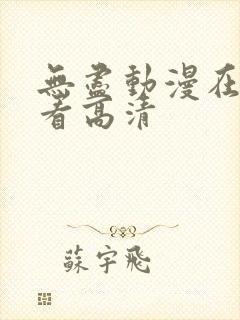 無盡動漫在
看高清
蘇宇飛